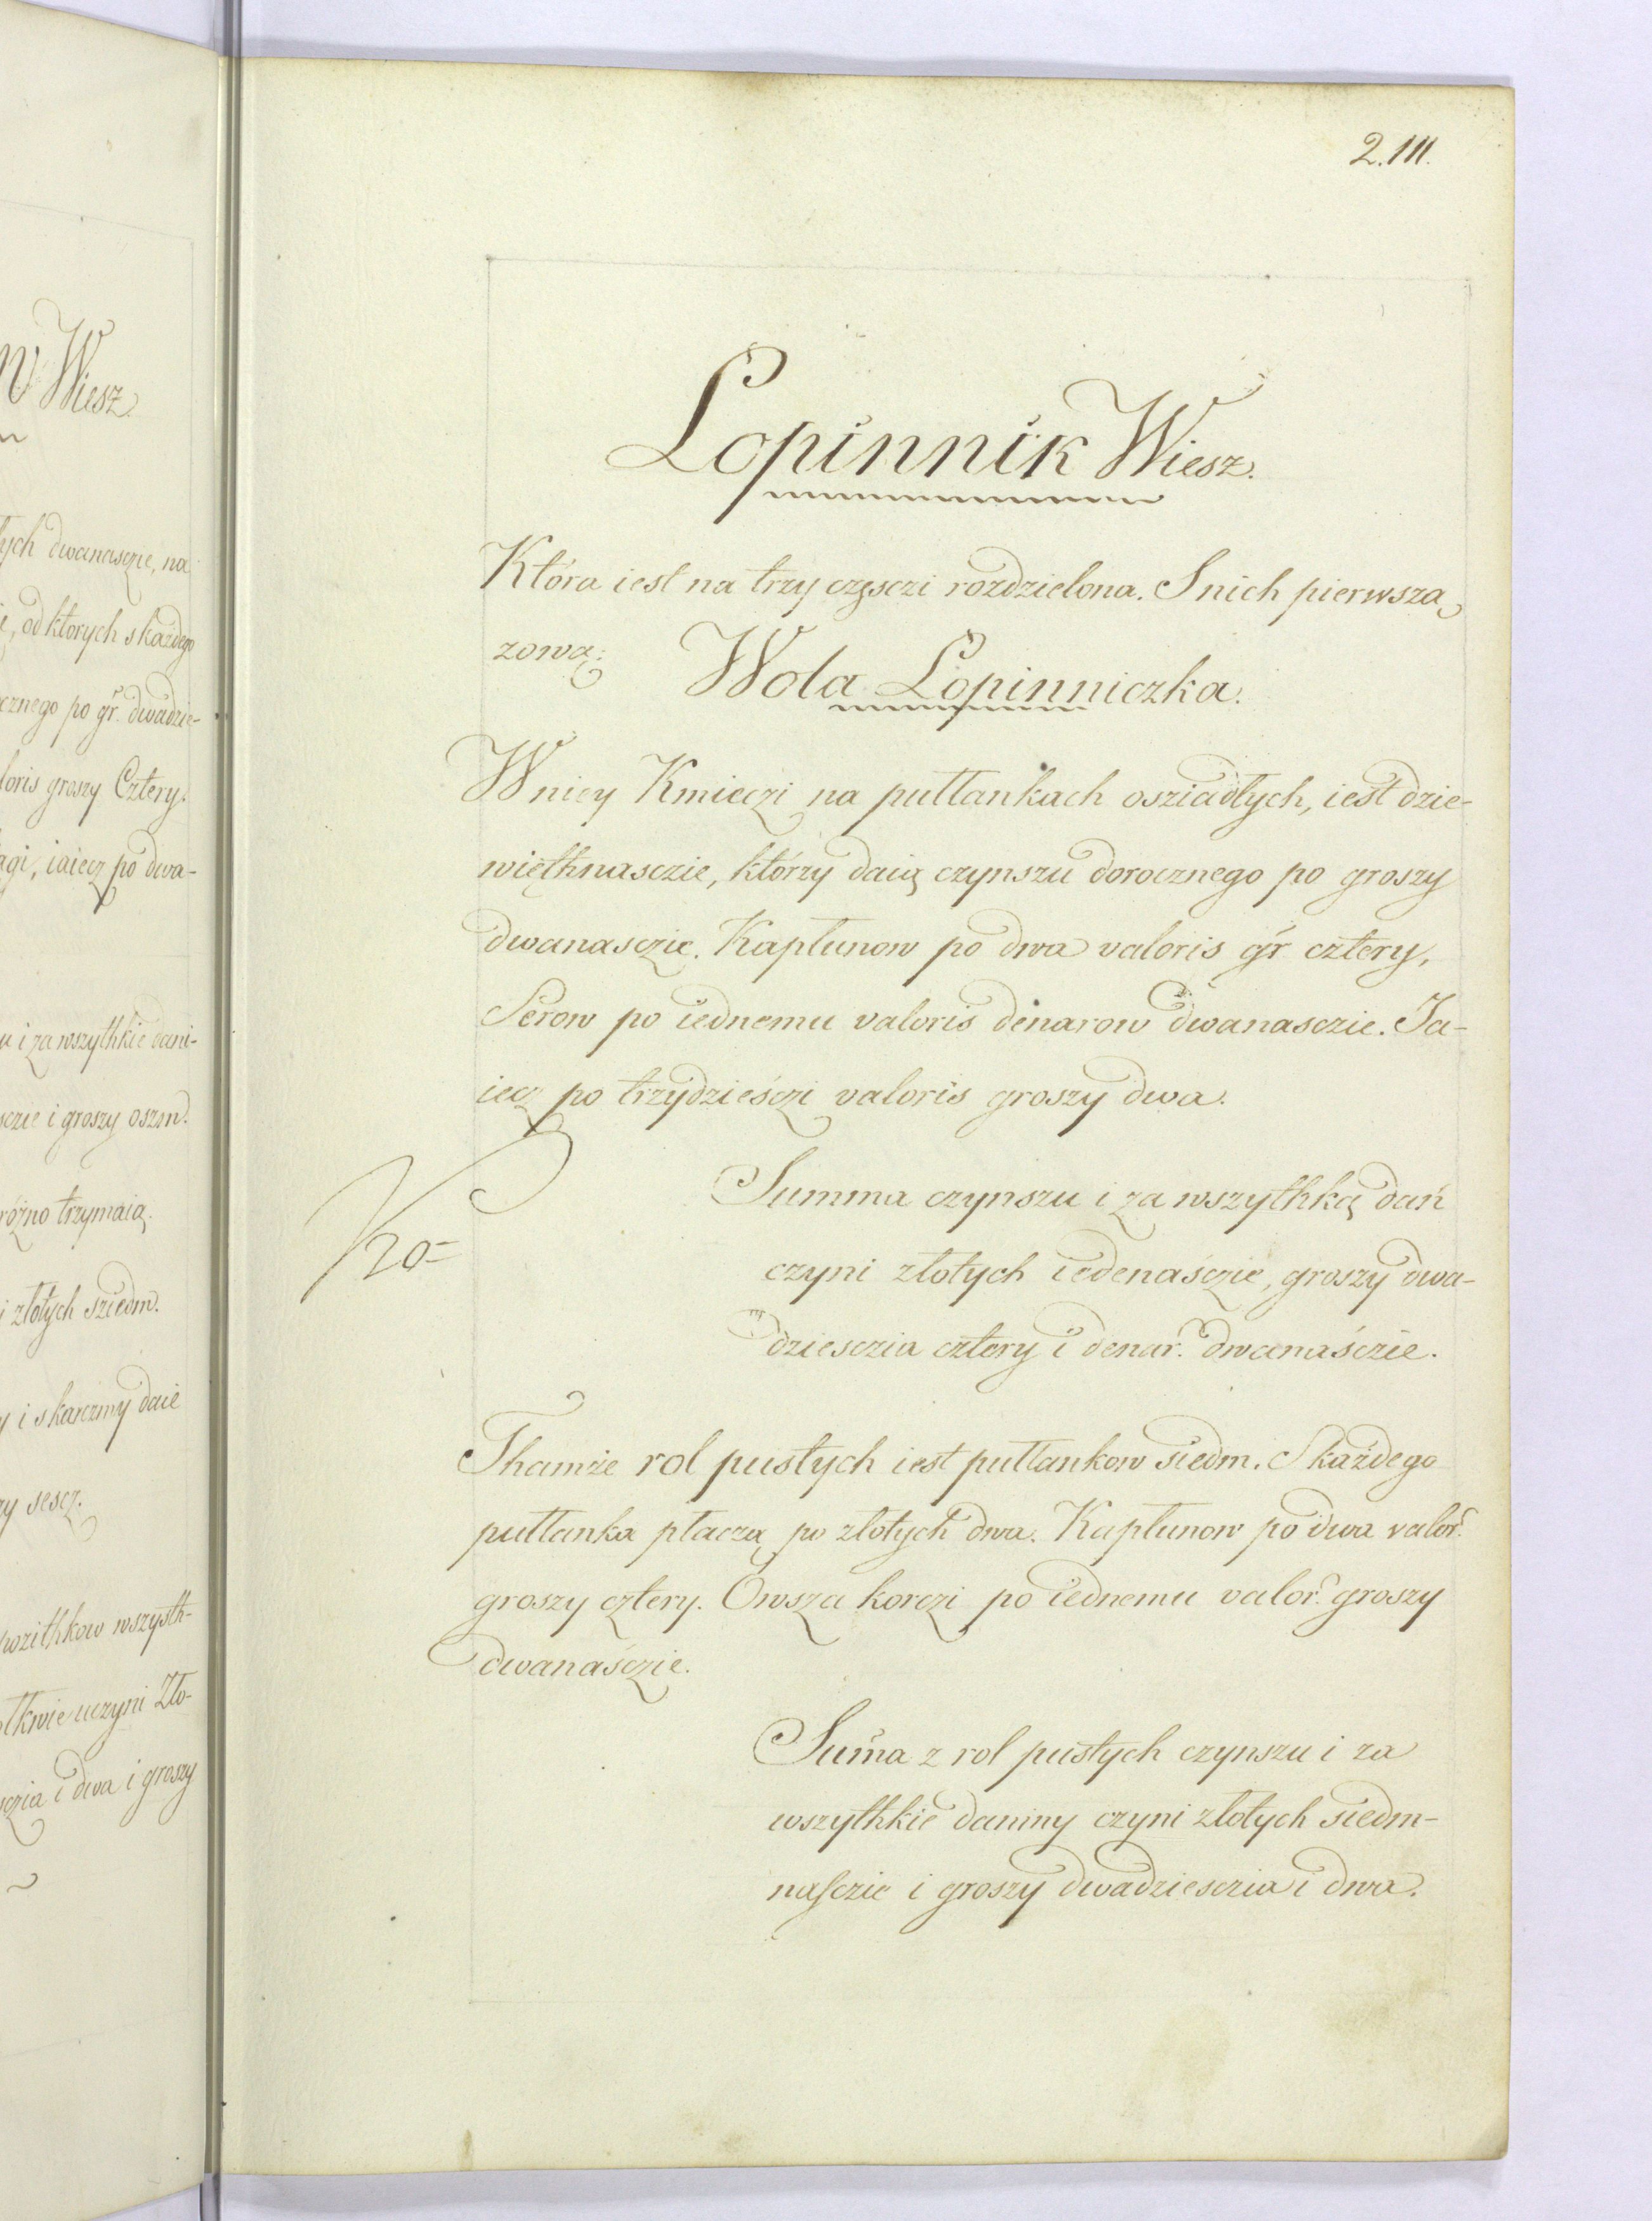 W Wiesz.
tych dwanasczie, na
i, od ktorych s każdego
cznego po gr. dwadzie-
loris groszy Cztery.
agi, iaiecz po dwa-
u i za wszythkie dani-
sczie i groszy oszm.
różno trzymaią.
i złotych sziedm.
y i s karczmy daie
zy sescz.
wszythk-
uczyni Zło-
sczia i dwa i groszy
2.111.
Lopinnik Wiesz.
Która iest na trzy częsczi rozdzielona. S nich pierwsza
zową:
Wola Lopinniczka.
W niey Kmieczi na pułłankach osziadłych, iest dzie-
więthnasczie, którzy daią czynszu dorocznego po groszy
dwanasczie. Kapłunow po dwa valoris gr cztery,
Serow po iednemu valoris denarow dwanasczie. Ja-
iecz po trzydzieśczi valoris groszy dwa.
20=
Summa czynszu i za wszythką dań
czyni złotych iedenaśczie, groszy dwa-
dziesczia cztery i denar. dwanaśczie.
Thamże rol pustych iest pułłankow siedm. S każdego
pułłanka płaczą po złotych dwa. Kapłunow po dwa valor.
groszy cztery. Owsza korczi po iednemu valor. groszy
dwanaśczie.
Sum̃a z rol pustych czynszu i za
wszythkie daniny czyni złotych siedm-
naſczie i groszy dwadziesczia i dwa.